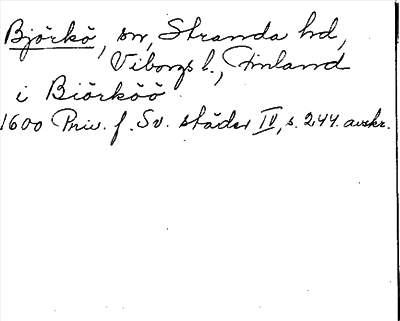 Björkö, sn, Stranda hd,
Viborgs l., Finland
i Biörköö
1600 Priv. f. Sv. städer IV, s. 244. avskr.